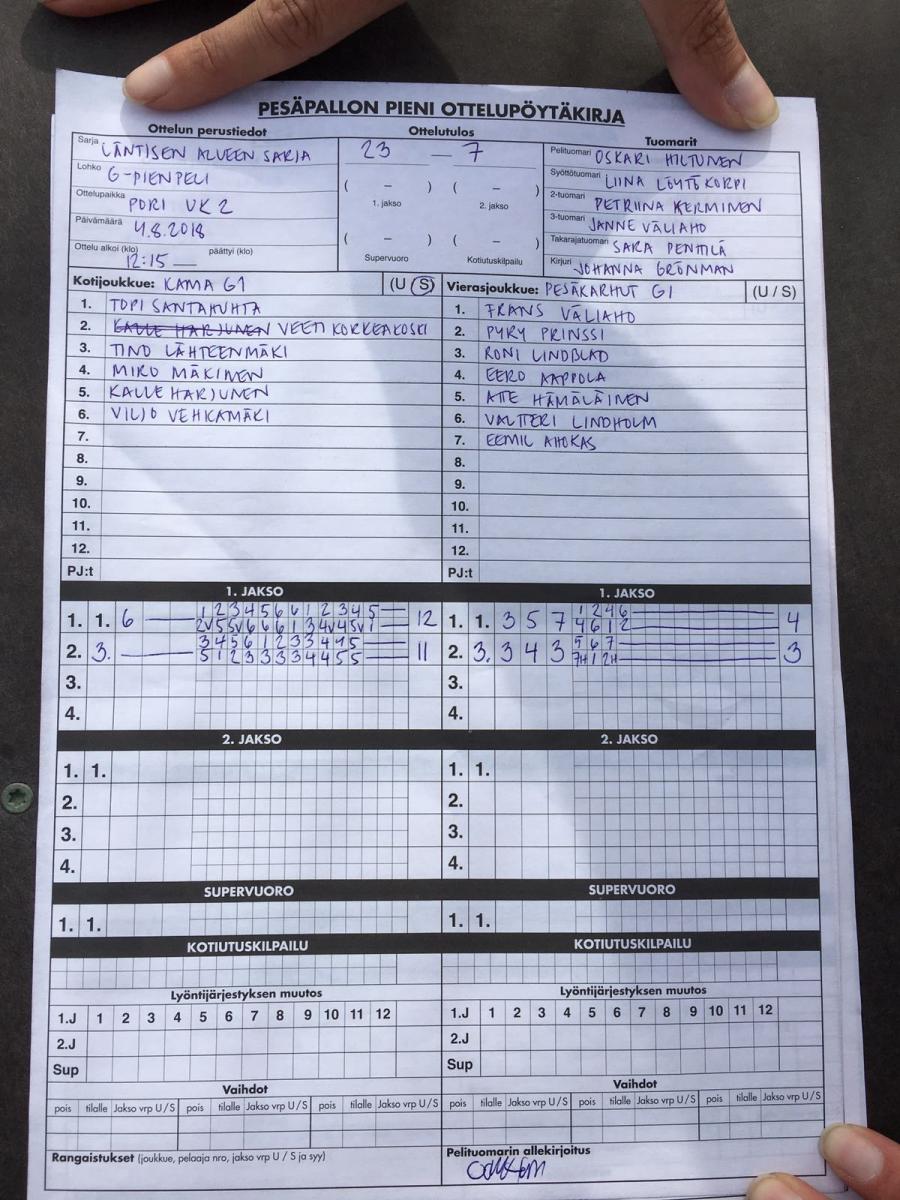 PESÄPALLON PIENI OTTELUPÖYTÄKIRJA
Ottelun perustiedot
Sarja LÄNTISEN ALUEEN SARJA
Lohko G-PIENPELI
Ottelupaikka PORI UK2
Päivämäärä 4.8.2018
Ottelu alkoi (klo) 12:15 — päättyi (klo)
Ottelutulos
23 — 7
( – ) ( – )
1. jakso 2. jakso
( – ) ( – )
Supervuoro Kotiutuskilpailu
Tuomarit
Pelituomari OSKARI HILTUNEN
Syöttötuomari LIINA LÖYTÖKORPI
2-tuomari PETRIINA KERMINEN
3-tuomari JANNE VÄLIAHO
Takarajatuomari SARA PENTTILÄ
Kirjuri JOHANNA GRÖNMAN
Kotijoukkue: KAMA G1 (U S)
1. TOPI SANTAHUHTA
2. KALLE HARJUNEN VEETI KORKEAKOSKI
3. TINO LÄHTEENMÄKI
4. MIRO MÄKINEN
5. KALLE HARJUNEN
6. VILJO VEHKAMÄKI
7.
8.
9.
10.
11.
12.
PJ:t
Vierasjoukkue: PESÄKARHUT G1 (U / S)
1. FRANS VÄLIAHO
2. PYRY PRINSSI
3. RONI LINDBLAD
4. EERO AAPPOLA
5. ATTE HÄMÄLÄINEN
6. VALTTERI LINDHOLM
7. EEMIL AHOKAS
8.
9.
10.
11.
12.
PJ:t
1. JAKSO
1. 1. 6 — 1 2 3 4 5 6 6 1 2 3 4 5 — 12
2V 5 5V 6 6 6 1 3 4V 4 5V 1
2. 3. — 3 4 5 6 1 2 3 3 4 4 5 — 11
5 1 2 3 3 3 3 4 4 5 5
3.
4.
1. JAKSO
1. 1. 3 5 7 1 2 4 6 — 4
4 6 1 2
2. 3. 3 4 3 5 6 7 — 3
7H 1 2H
3.
4.
2. JAKSO
1. 1.
2.
3.
4.
2. JAKSO
1. 1.
2.
3.
4.
SUPERVUORO
1. 1.
SUPERVUORO
1. 1.
KOTIUTUSKILPAILU
KOTIUTUSKILPAILU
Lyöntijärjestyksen muutos
1.J 1 2 3 4 5 6 7 8 9 10 11 12
2.J
Sup
Lyöntijärjestyksen muutos
1.J 1 2 3 4 5 6 7 8 9 10 11 12
2.J
Sup
Vaihdot
pois tilalle Jakso vrp U/S pois tilalle Jakso vrp U/S pois tilalle Jakso vrp U/S
Vaihdot
pois tilalle Jakso vrp U/S pois tilalle Jakso vrp U/S pois tilalle Jakso vrp U/S
Rangaistukset (joukkue, pelaaja nro, jakso vrp U / S ja syy)
Pelituomarin allekirjoitus